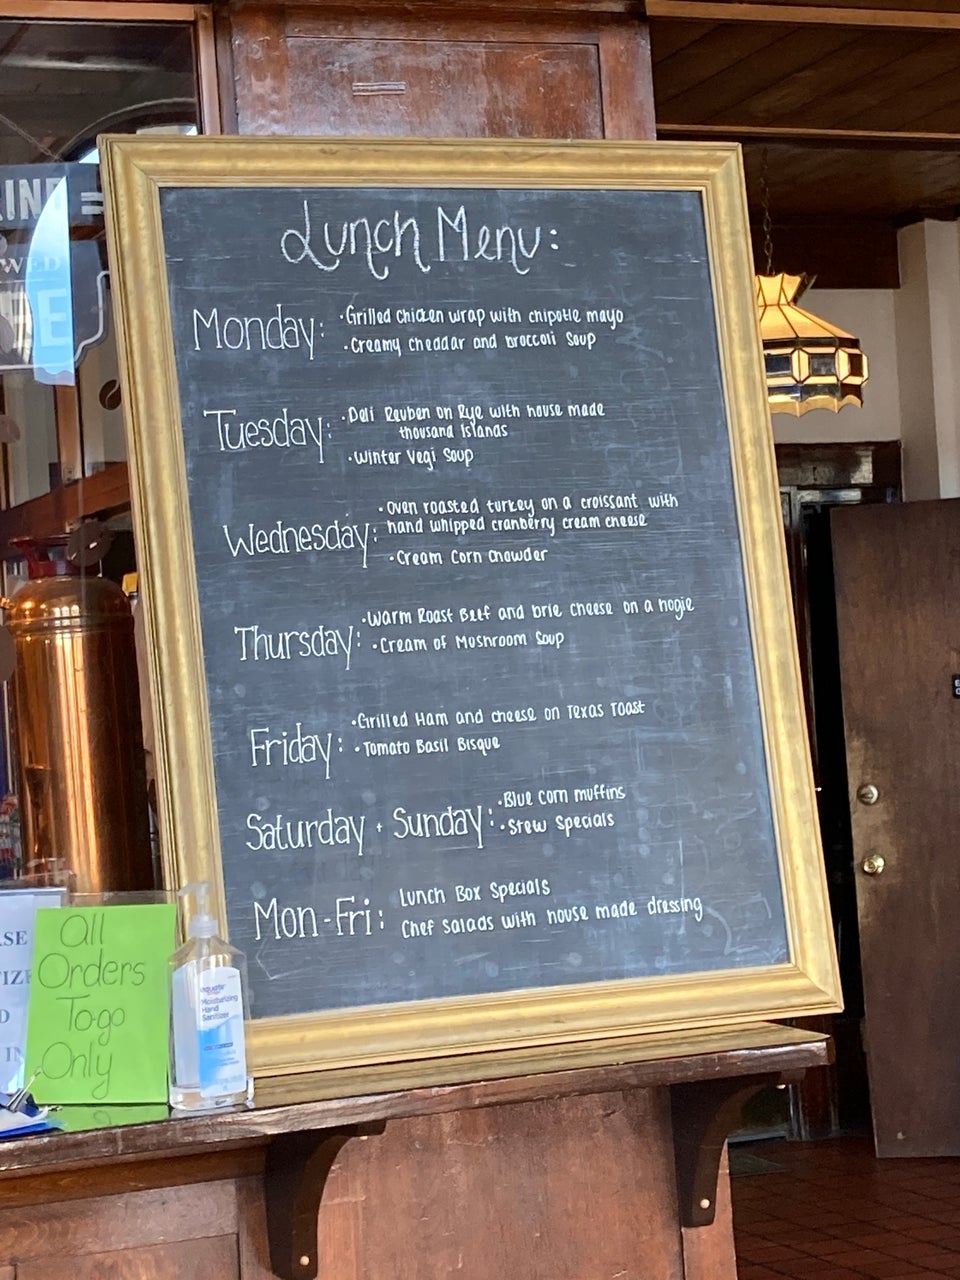 Lunch Menu:
Monday:
• Grilled chicken wrap with chipotle mayo
• Creamy cheddar and broccoli Soup
Tuesday:
• Deli Reuben on Rye with house made
thousand Islands
• Winter Vegi Soup
Wednesday:
• Oven roasted turkey on a croissant with
hand whipped cranberry cream cheese
• Cream Corn chowder
Thursday:
• Warm Roast Beef and brie cheese on a hogie
• Cream of Mushroom Soup
Friday:
• Grilled Ham and cheese on Texas Toast
• Tomato Basil Bisque
Saturday + Sunday:
• Blue corn muffins
• Stew Specials
Mon-Fri:
Lunch Box Specials
Chef salads with house made dressing
All
Orders
Togo
Only
equate
Moisturizing
Hand
Sanitizer